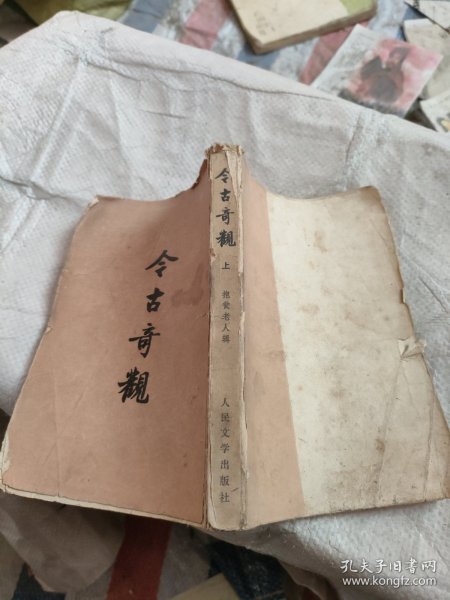 今古奇觀
今古奇觀
上
抱甕老人輯
人民文学出版社
孔夫子旧书网
www.kongfz.com